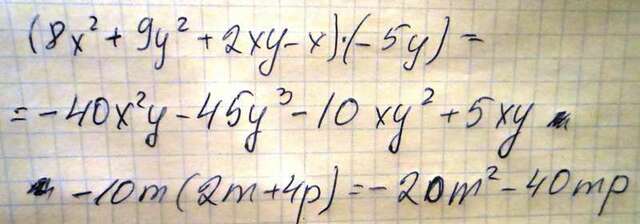 (8x² + 9y² + 2xy - x)·(-5y) =
= -40x²y - 45y³ - 10xy² + 5xy
-10m(2m+4p) = -20m² - 40mp